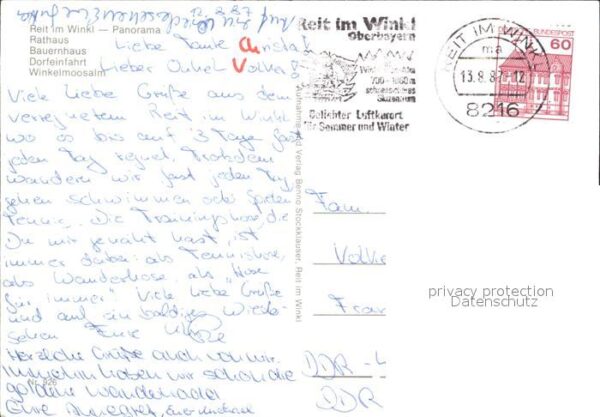 12.8.87
Reit im Winkl — Panorama
Rathaus
Bauernhaus
Dorfeinfahrt
Winkelmoosalm
Liebe Tante Christa!
Lieber Onkel Volker!
Viele liebe Grüße aus dem
verregneten Reit im Winkl
wo es bis auf 3 Tage fast
jeden Tag regnet. Trotzdem
wandern wir fast jeden Tag
gehen schwimmen oder spielen
Tennis. Die Trainingshose, die
Du mir genäht hast, ist
immer dabei: als Tennishose,
als Wanderhose, als "Hose
für immer". Viele liebe Grüße
und auf ein baldiges Wieder-
sehen Eure
Herzliche Grüße auch von mir.
Immerhin haben wir schon die
goldene Wandernadel
Eure Euer Michael
Nr. 926
Aufnahme und Verlag Benno Stockklauser, Reit im Winkl
Reit im Winkl
Oberbayern
700 - 1800 m
schneesicheres
Skizentrum
Beliebter Luftkurort
für Sommer und Winter
REIT IM WINKL
ma
13.8.87-12
8216
DEUTSCHE BUNDESPOST
60
Fam.
Volke
Fran
DDR -
DDR
privacy protection
Datenschutz